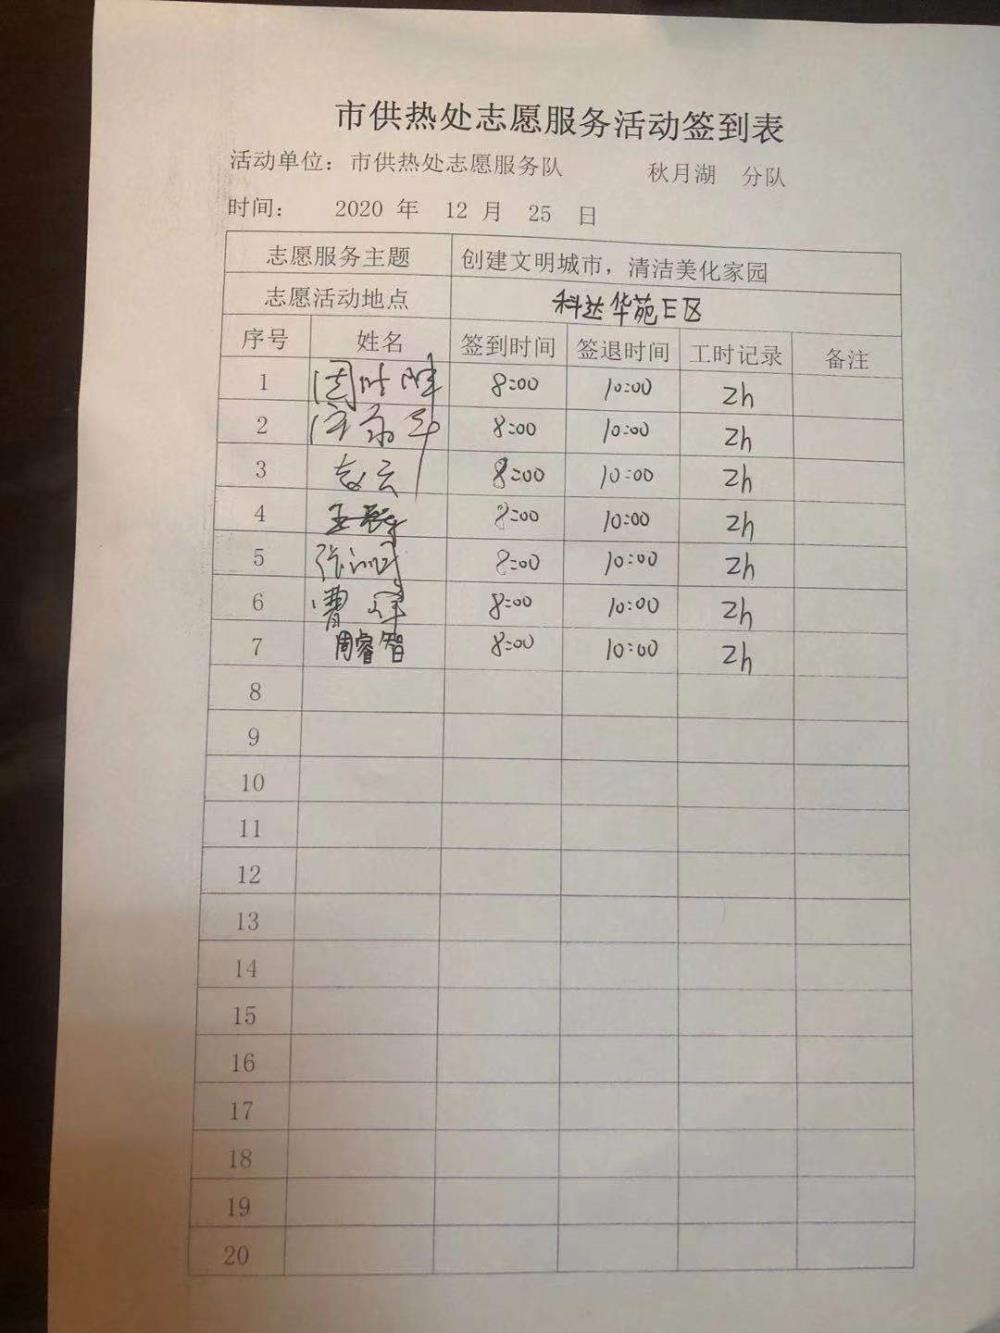 市供热处志愿服务活动签到表
活动单位：市供热处志愿服务队 秋月湖 分队
时间： 2020 年 12 月 25 日
志愿服务主题 创建文明城市，清洁美化家园
志愿活动地点 科达华苑E区
序号 姓名 签到时间 签退时间 工时记录 备注
1 8:00 10:00 2h
2 8:00 10:00 2h
3 8:00 10:00 2h
4 8:00 10:00 2h
5 8:00 10:00 2h
6 曹 8:00 10:00 2h
7 周睿智 8:00 10:00 2h
8
9
10
11
12
13
14
15
16
17
18
19
20